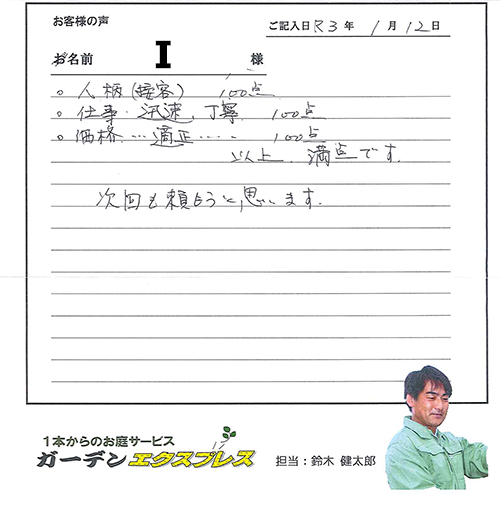 お客様の声
ご記入日 R3年 1月 12日
お名前 I 様
○ 人柄(接客) 100点
○ 仕事・迅速、丁寧 100点
○ 価格…適正‥‥ 100点
以上、満点です。
次回も頼もうと、思います。
1本からのお庭サービス
ガーデンエクスプレス
担当:鈴木 健太郎